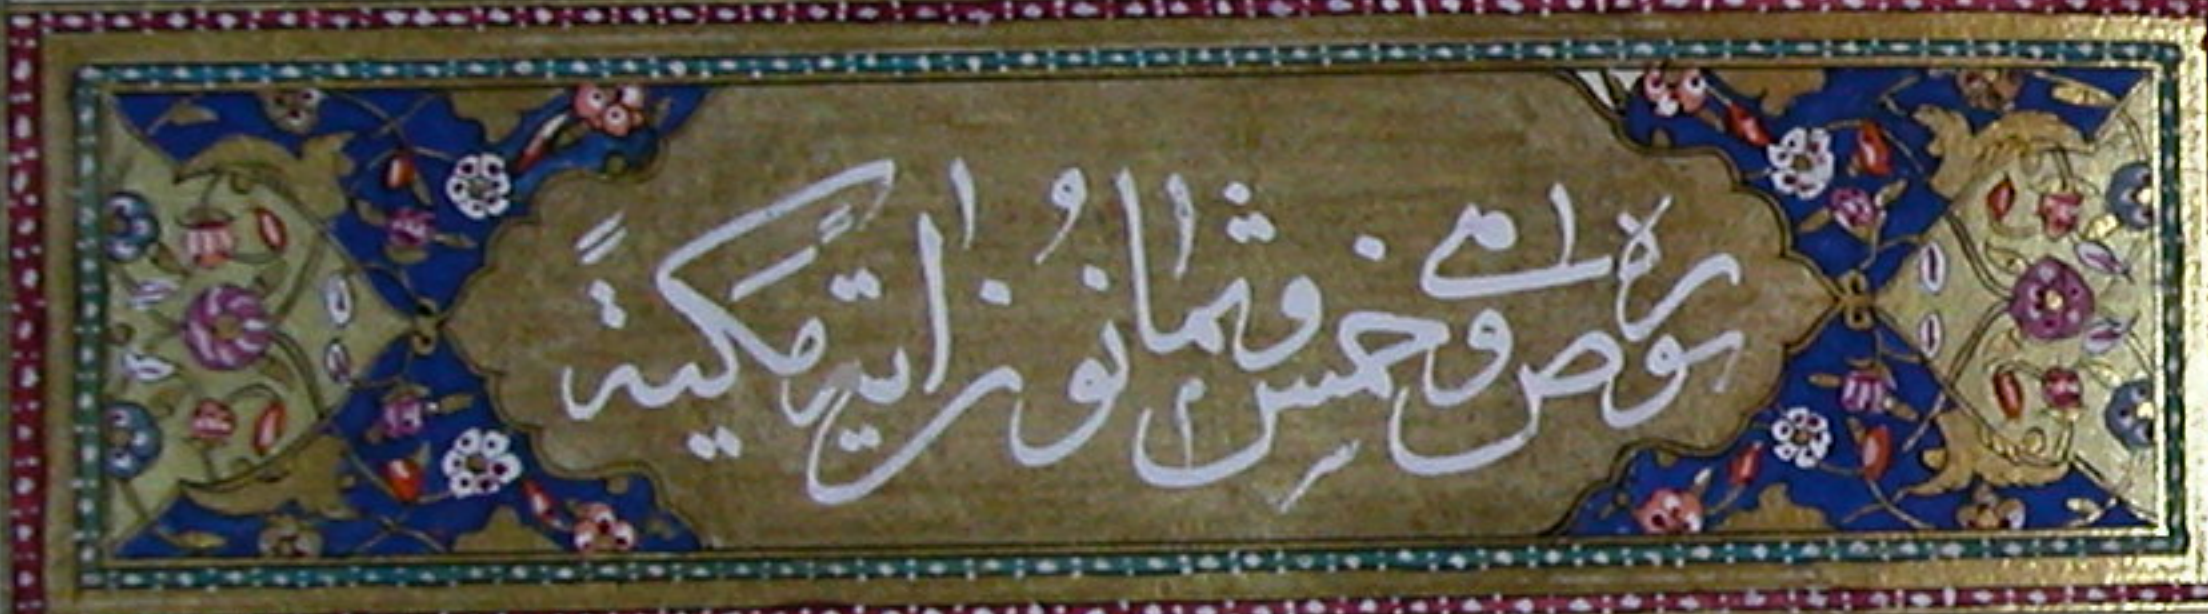 سوره ص وهي خمس وثمانون اية مكيةً